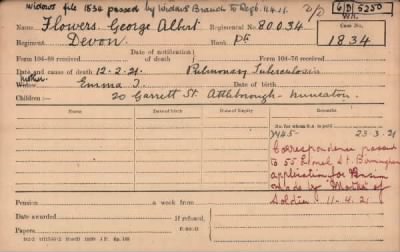 Widows file 1834 passed by Widows Branch to Regt. 11.4.21.
WA.
Name Flowers. George Albert Regimental No. 80034
Case No.
Regiment Devon. Rank Pte 1834
Date of notification
of death
Form 104-88 received Form 104-76 received
Date and cause of death 12-2-21. Pulmonary Tuberculosis
Mother
Widow Emma J.
20 Garrett St. Attleborough. Nuneaton
Children:
Date of birth
Date of Expiry
No. for whom
23-3-21
Correspondence passed
to 55 Lionel St. Birmingham
application for Pension
made by "Mother" of
Soldier 11-4-21
Pension a week from
Date awarded
If refused,
Papers